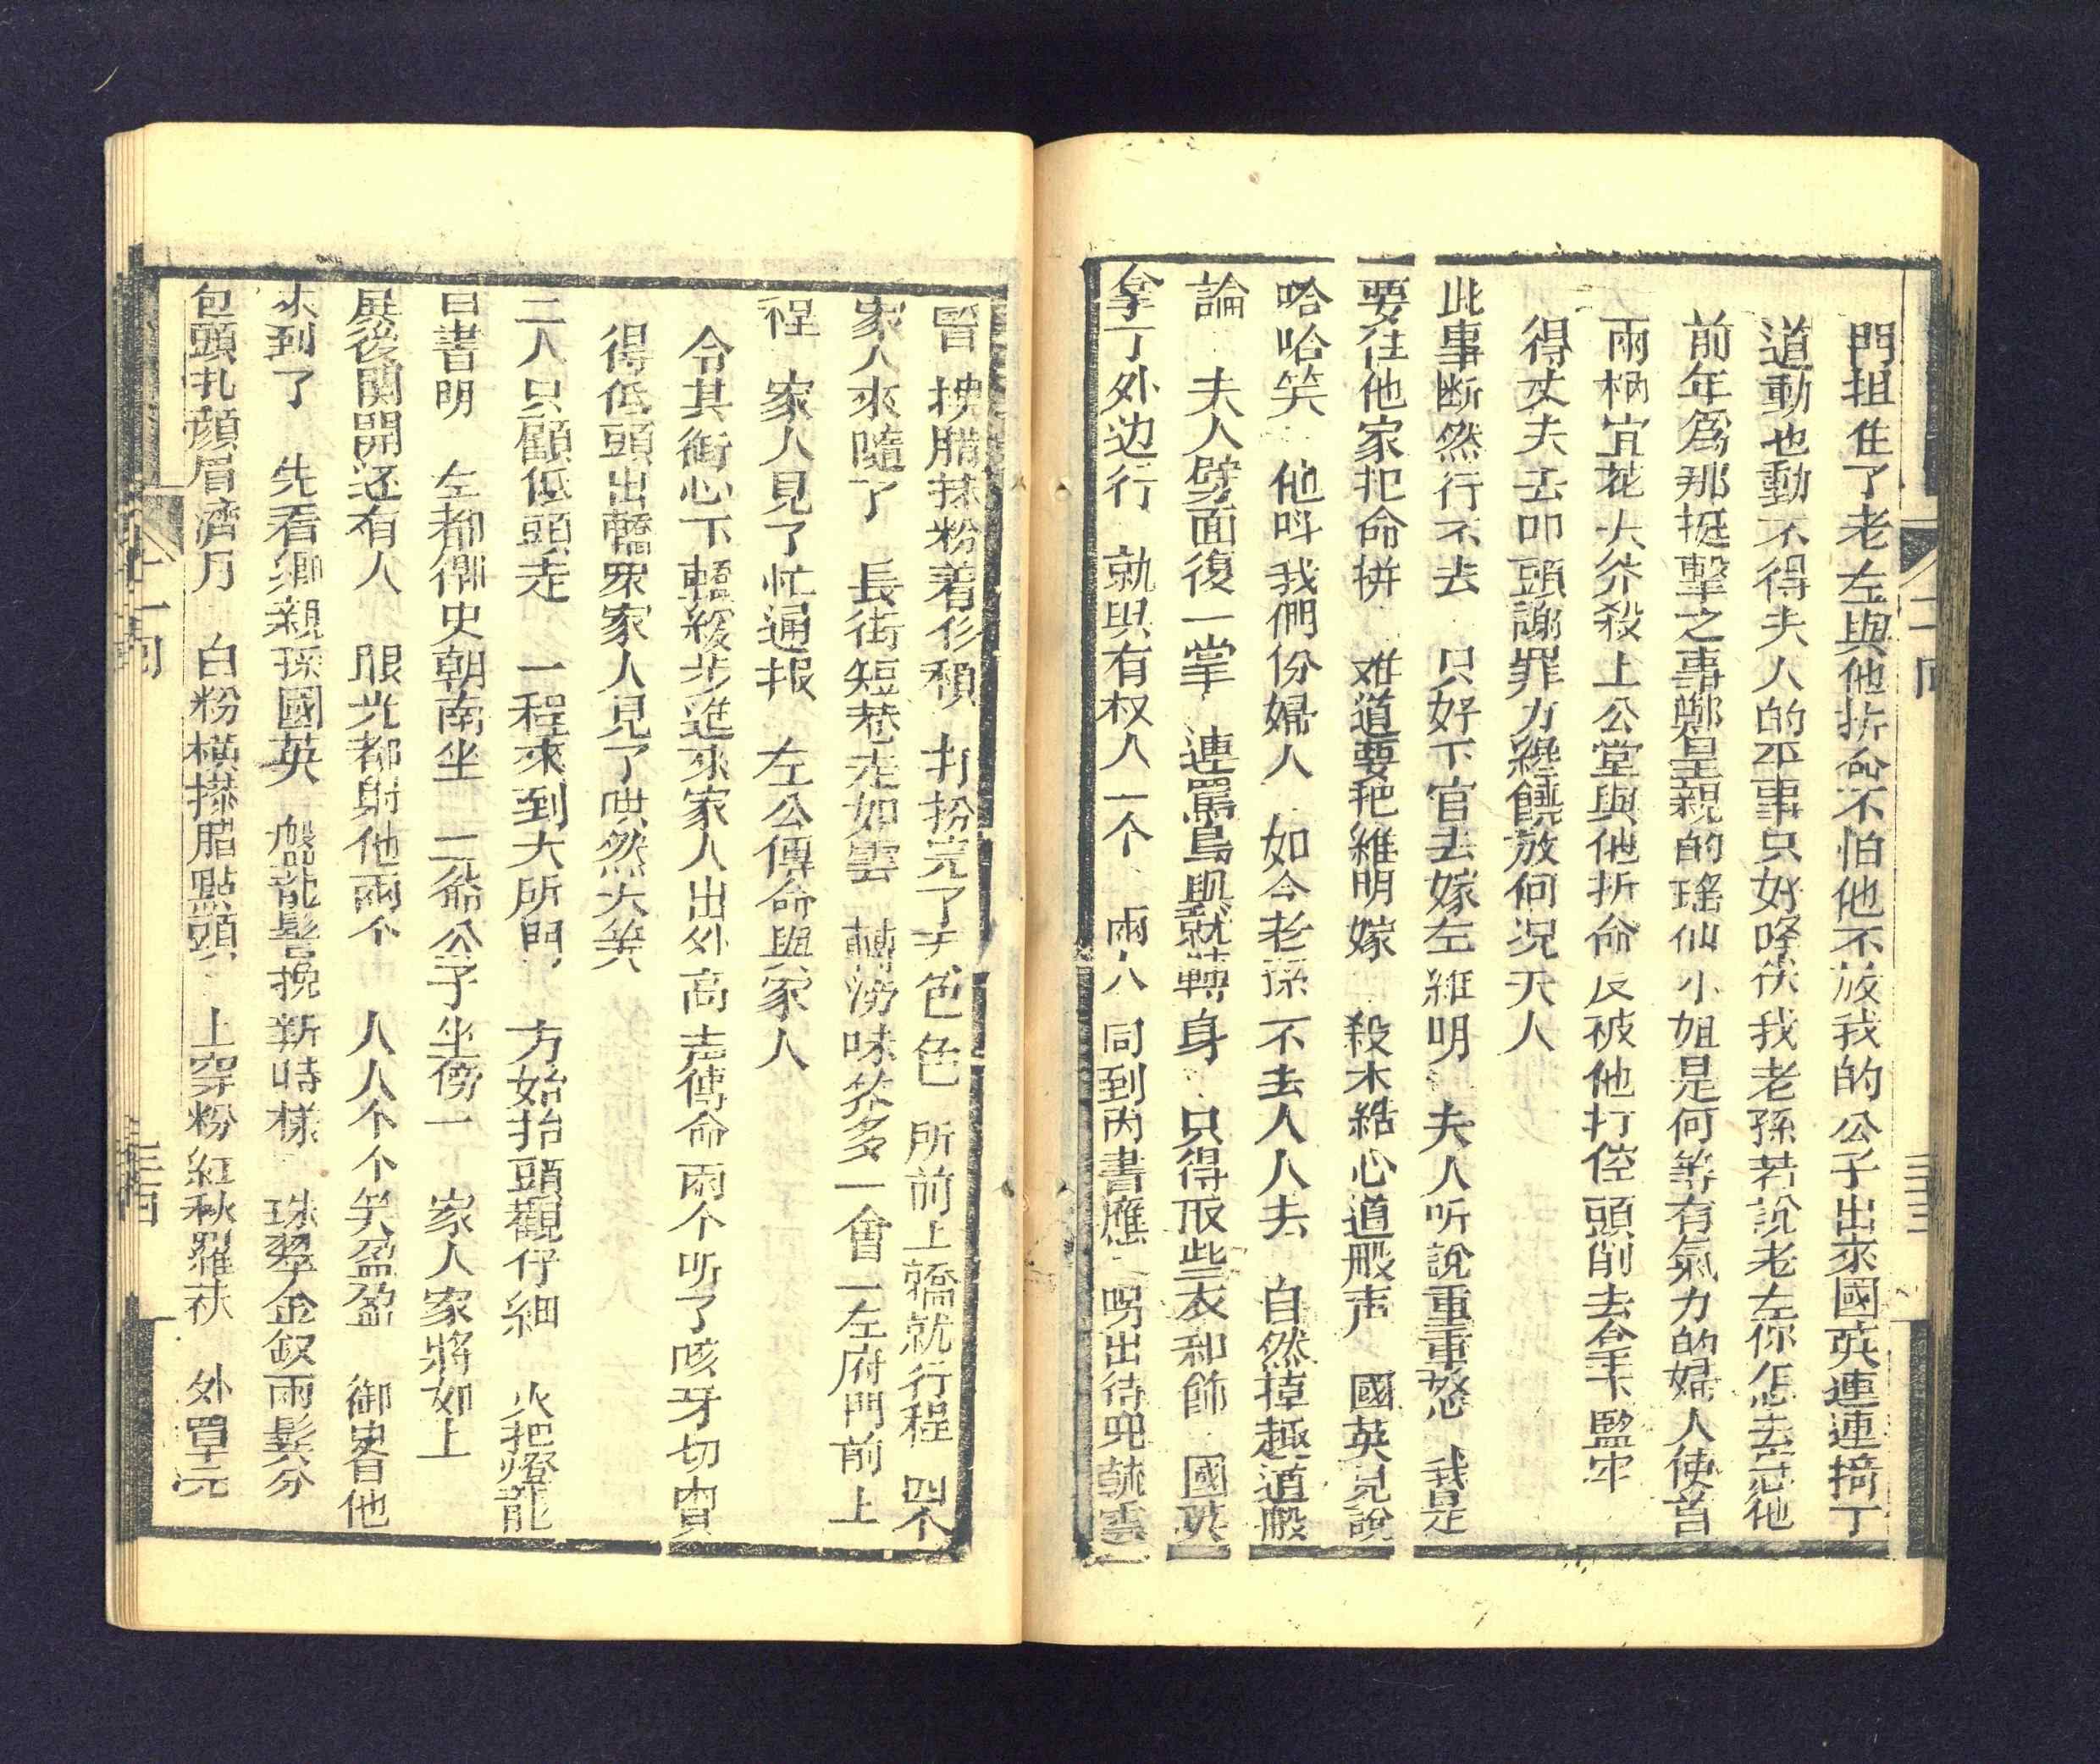 門扭住了老左與他折命不怕他不放我的公子出來國英連連搖了
道動也動不得夫人的平事只好咚我老孫若說老左你怎去惹他
前年為那挺擊之事鄭皇親的瑤仙小姐是何等有氣力的婦人使首
兩柄宜花大斧殺上公堂與他折命反被他打倒頭削去拿下監牢
得丈夫去叩頭謝罪方纔饒放何况夫人
此事断然行不去 只好下官去嫁左維明 夫人听說重重怒 我是
要往他家犯命拼 难道要把維明嫁 殺木結心道般声 國英見說
哈哈笑 他叫我們份婦人 如今老孫不去人人去 自然掉趣道般
論 夫人劈面復一掌 連罵烏興就轉身 只得取些衣和飾 國英
拿了外边行 就與有权人一个 兩人同到內書應 呪出待兜
晋 抉腊抹粉着衫積 打扮完了天色色 所前上轎就行程 四个
家人來隨了 長街短巷走如雲 轉湾味茶多一會 左府門前上
程 家人見了忙通报 左公傳命與家人
令其衙心下轎緩步進來家人出外高声傳命兩个听了咳牙切實
得低頭出轎眾家人見了哄然大笑
二人只顧低頭走 一程來到大所門 方始抬頭觀仔細 火把燈籠
日書明 左都御史朝南坐 二爺公子坐傍一 家人家將如上
屏後閧開还有人 眼光都射他兩个 人人个个笑盈盈 御史眷他
來到了 先看鄉親孫國英 盤龍髻挽新時樣 珠翠金釵兩鬂分
包頭扎顔眉濟万 白粉橫搽腊點頭 上穿粉紅秋羅袄 外罩元
十一回
三十三
十一回
三十四